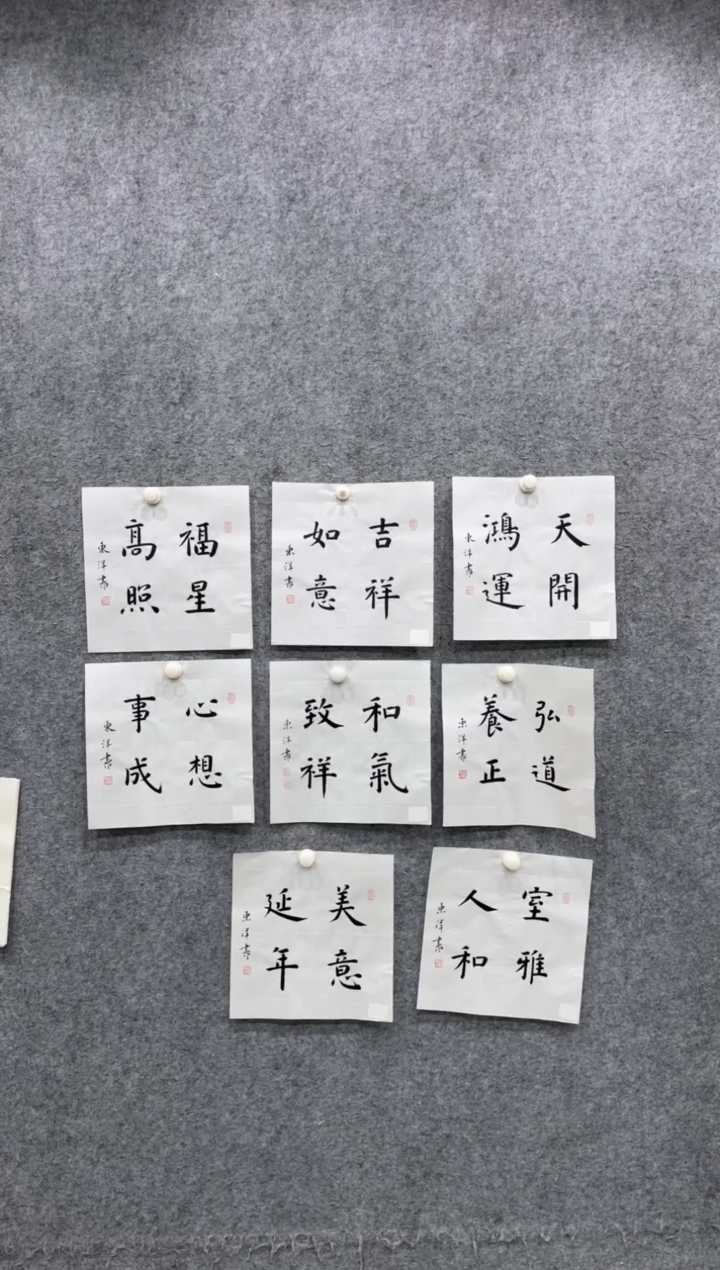 福星
高照
東洋書
吉祥
如意
東洋書
天開
鴻運
東洋書
心想
事成
東洋書
和氣
致祥
東洋書
弘道
養正
東洋書
美意
延年
東洋書
室雅
人和
東洋書